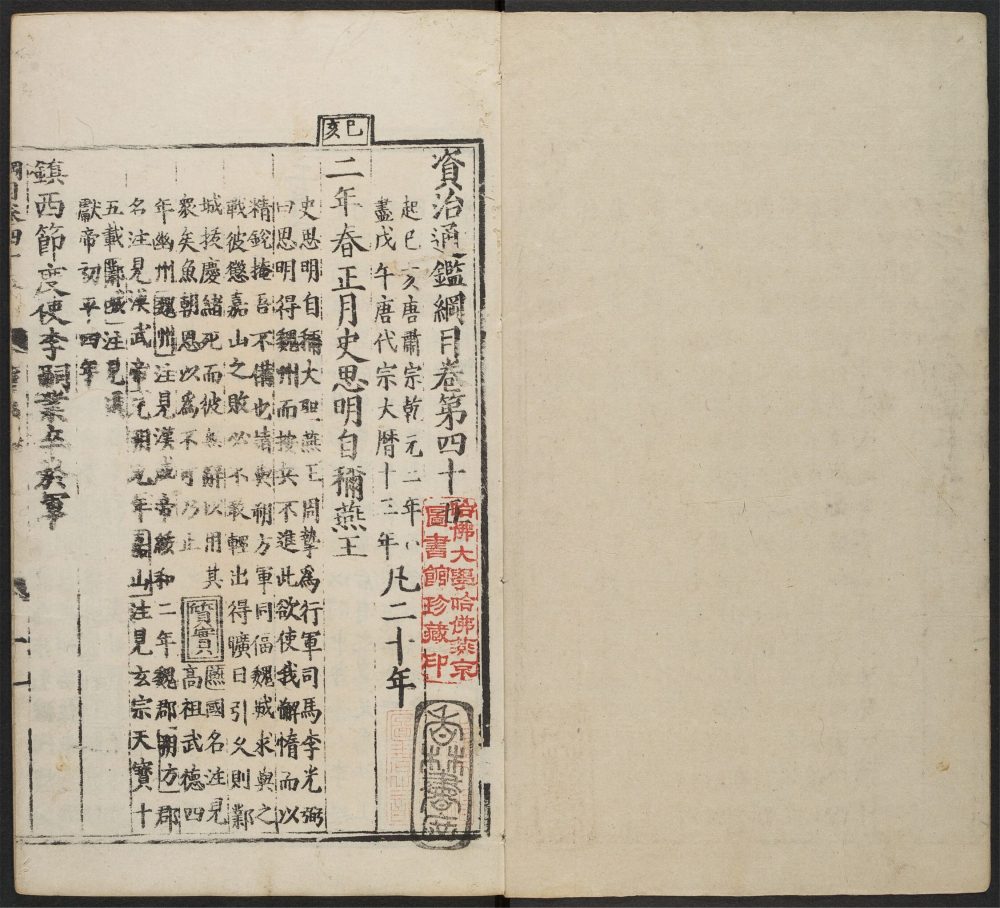 己亥
資治通鑑綱目卷第四十
起己亥唐肅宗乾元二年
盡戊午唐代宗大曆十三年 凡二十年
二年春正月史思明自稱燕王
史思明自稱大聖燕王周摯為行軍司馬李光弼
曰思明得魏州而按兵不進此欲使我懈惰而以
精銳掩吾不備也請與朔方軍同逼魏城求與之
戰彼懲嘉山之敗必不敢輕出得曠日引久則鄴
城拔慶緒死而彼無辭以用其
眾矣魚朝恩以為不可乃止 質實 燕國名注見高祖武德四
年幽州魏州注見漢成帝綏和二年魏郡朔方郡
名注見漢武帝元朔元年嘉山注見玄宗天寶十
五載鄴城注見
獻帝初平四年
鎮西節度使李嗣業卒於軍
哈佛大學哈佛燕京
圖書館珍藏印
香林書屋